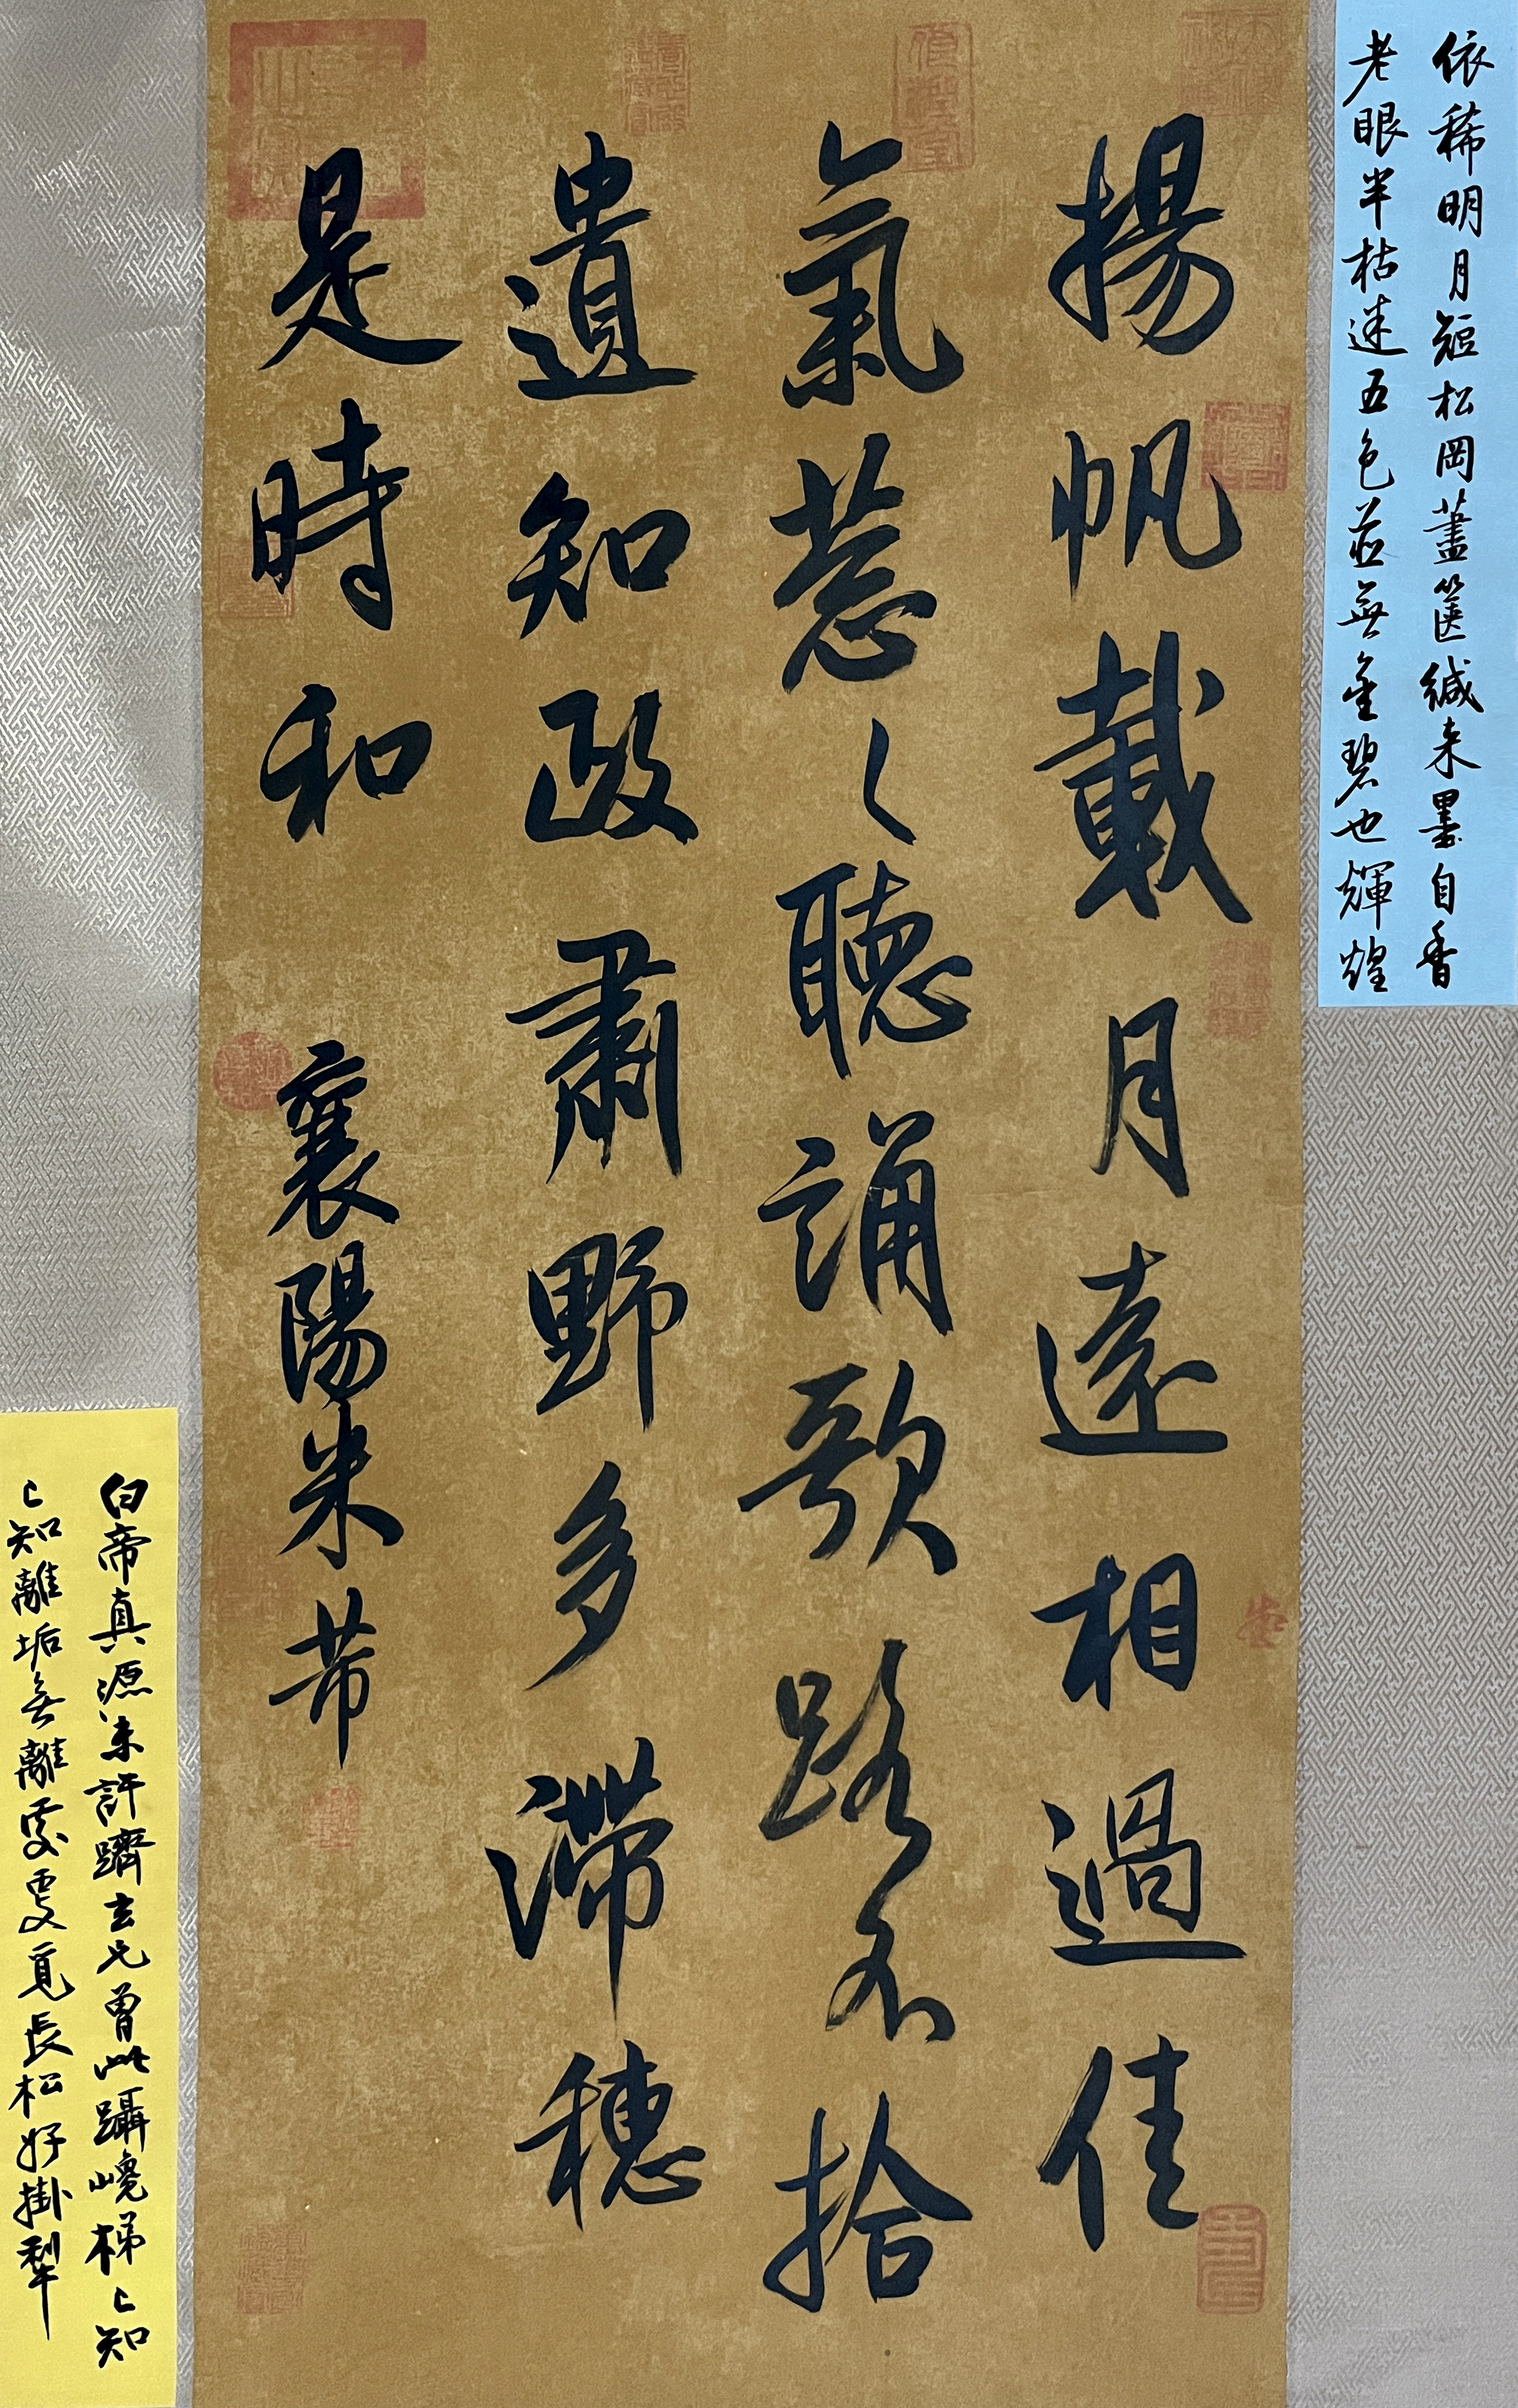 依稀明月短松岡藎篋緘来墨自香
老眼半枯迷五色並無金碧也輝煌
揚帆載月遠相過佳
氣葱〻聽誦歌路不拾
遺知政肅野多滯穗
是時和 襄陽米芾
白帝真源未許躋玄元曾此躡巉梯〻知
〻知離垢無離處更覓長松好掛犁